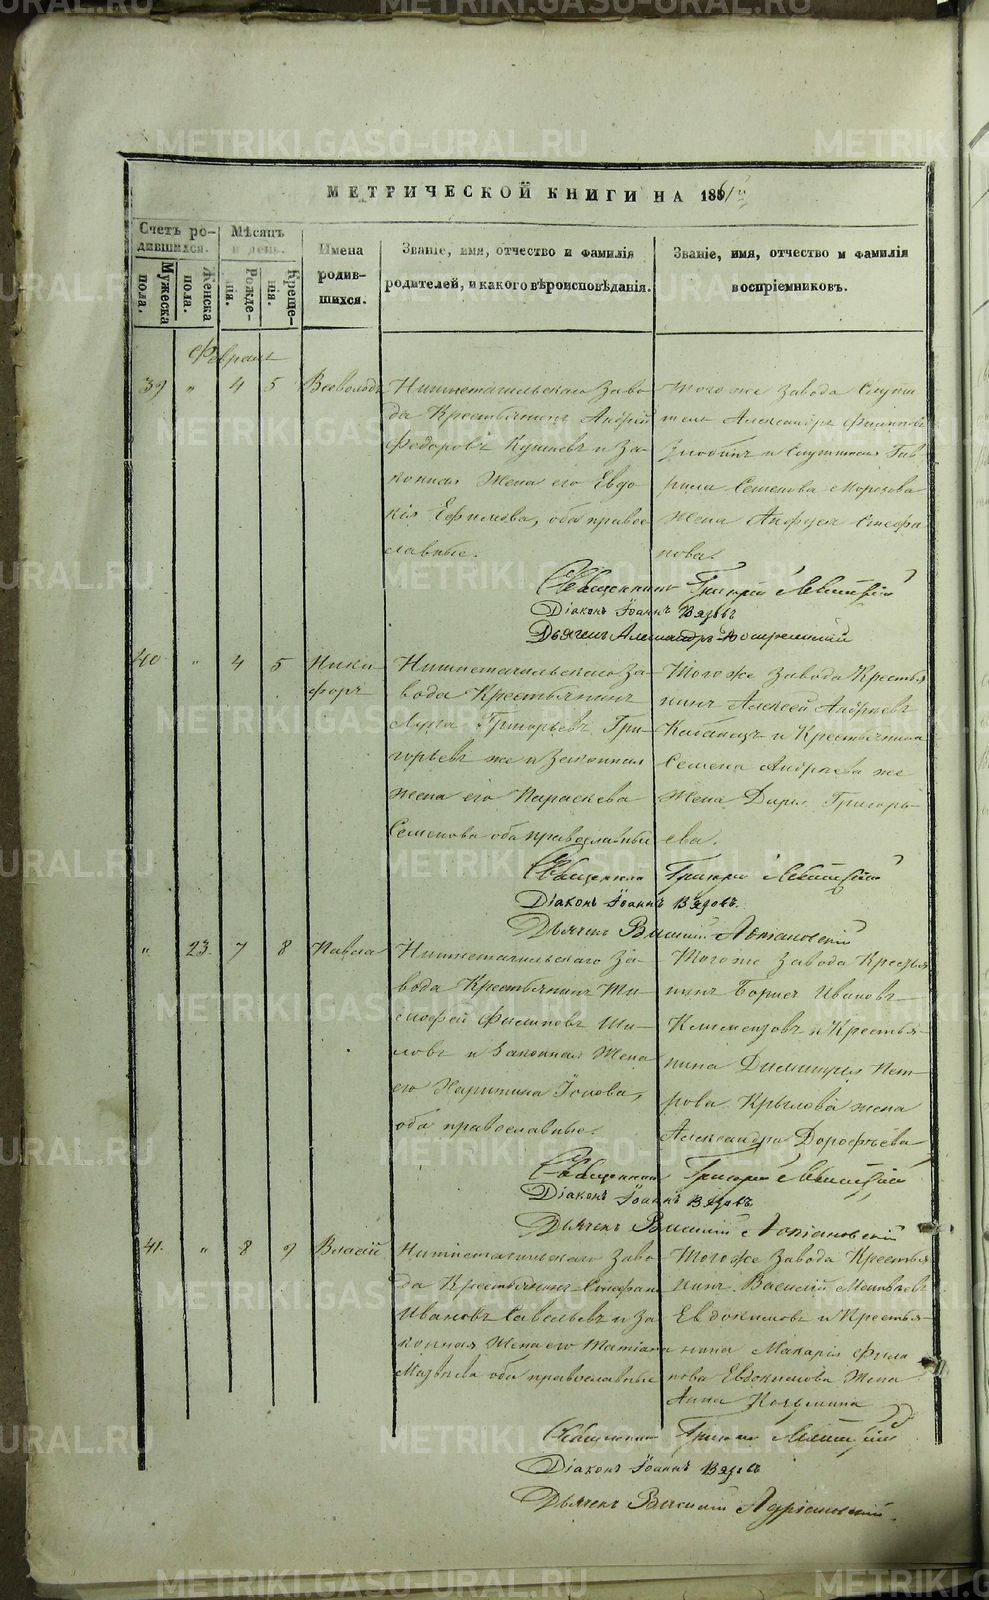 МЕТРИЧЕСКОЙ КНИГИ НА 1861
Счетъ ро-
дившихся.
Мужеска
пола.
Женска
пола.
Мѣсяцъ
и день.
Рожде-
нія.
Креще-
нія.
Имена
родив-
шихся.
Званіе, имя, отчество и фамилія
родителей, и какого вѣроисповѣданія.
Званіе, имя, отчество и фамилія
воспріемниковъ.
Февраль
39 " 4 5 Всеволодъ
Нижнетагильскаго Заво-
да Крестьянинъ Андрей
Федоровъ и За-
конная Жена его Евдо
кія Ефимова, оба право
славные.
Того же Завода Служи
тель Александръ Филиповъ
Злобинъ и Служителя Гав-
рила Семенова Морозова
Жена Анфуса Стефа
нова.
Священникъ Григорій Левитскій
Діаконъ Іоаннъ Вяземъ
Дьячекъ Александръ
40 " 4 5 Ники
форъ
Нижнетагильскаго За-
вода Крестьянинъ
Лука Григорьевъ Гри-
горьевъ же и Законная
жена его Параскева
Семенова оба православные
Того же Завода Крестья
нинъ Алексей Андреевъ
и Крестьянина
Семена Андреева же
Жена Дарья Григорь-
ева.
Священникъ Григорій Левитскій
Діаконъ Іоаннъ
Дьячекъ Василій Адріановскій
" 23. 7 8 Павла
Нижнетагильскаго За-
вода Крестьянинъ Ти-
мофей Филиповъ Ши-
ловъ и Законная Жена
его Харитина Іонова,
оба православные.
Того же Завода Крестья
нинъ Борисъ Ивановъ
Климентовъ и Крестья-
нина Димитрія Пет-
рова Крылова жена
Александра Дорофѣева
Священникъ Григорій Левитскій
Діаконъ Іоаннъ
Дьячекъ Василій Адріановскій
41. " 8 9 Власій
Нижнетагильскаго Заво-
да Крестьянинъ Стефанъ
Ивановъ Савельевъ и За
конная Жена его Татіана
оба православные
Того же Завода Крестья
нинъ Василій Матвѣевъ
Евдокимовъ и Крестья-
нина Макарія Фили
пова Евдокимова Жена
Анна Козьмина
Священникъ Григорій Левитскій
Діаконъ Іоаннъ
Дьячекъ Василій Адріановскій.
METRIKI.GASO-URAL.RU